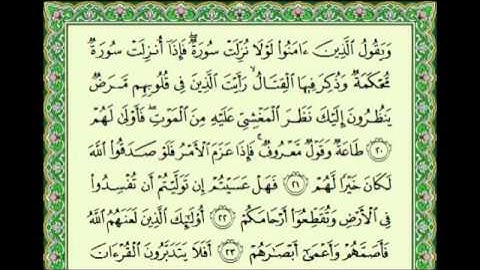 وَيَقُولُ الَّذِينَ ءَامَنُوا۟ لَوْلَا نُزِّلَتْ سُورَةٌ ۖ فَإِذَآ أُنزِلَتْ سُورَةٌ
مُّحْكَمَةٌ وَذُكِرَ فِيهَا الْقِتَالُ ۙ رَأَيْتَ الَّذِينَ فِى قُلُوبِهِم مَّرَضٌ
يَنظُرُونَ إِلَيْكَ نَظَرَ الْمَغْشِىِّ عَلَيْهِ مِنَ الْمَوْتِ ۖ فَأَوْلَىٰ لَهُمْ
٢٠ طَاعَةٌ وَقَوْلٌ مَّعْرُوفٌ ۚ فَإِذَا عَزَمَ الْأَمْرُ فَلَوْ صَدَقُوا۟ اللَّهَ
لَكَانَ خَيْرًا لَّهُمْ ٢١ فَهَلْ عَسَيْتُمْ إِن تَوَلَّيْتُمْ أَن تُفْسِدُوا۟
فِى الْأَرْضِ وَتُقَطِّعُوٓا۟ أَرْحَامَكُمْ ٢٢ أُو۟لَٰٓئِكَ الَّذِينَ لَعَنَهُمُ اللَّهُ
فَأَصَمَّهُمْ وَأَعْمَىٰٓ أَبْصَارَهُمْ ٢٣ أَفَلَا يَتَدَبَّرُونَ الْقُرْءَانَ